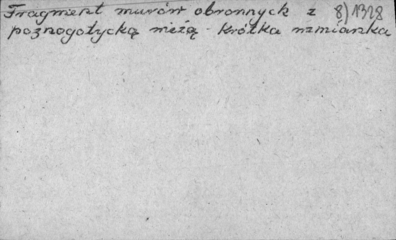 Fragment murów obronnych z 8) 1328
poznogotycką wieżą - Krótka wzmianka